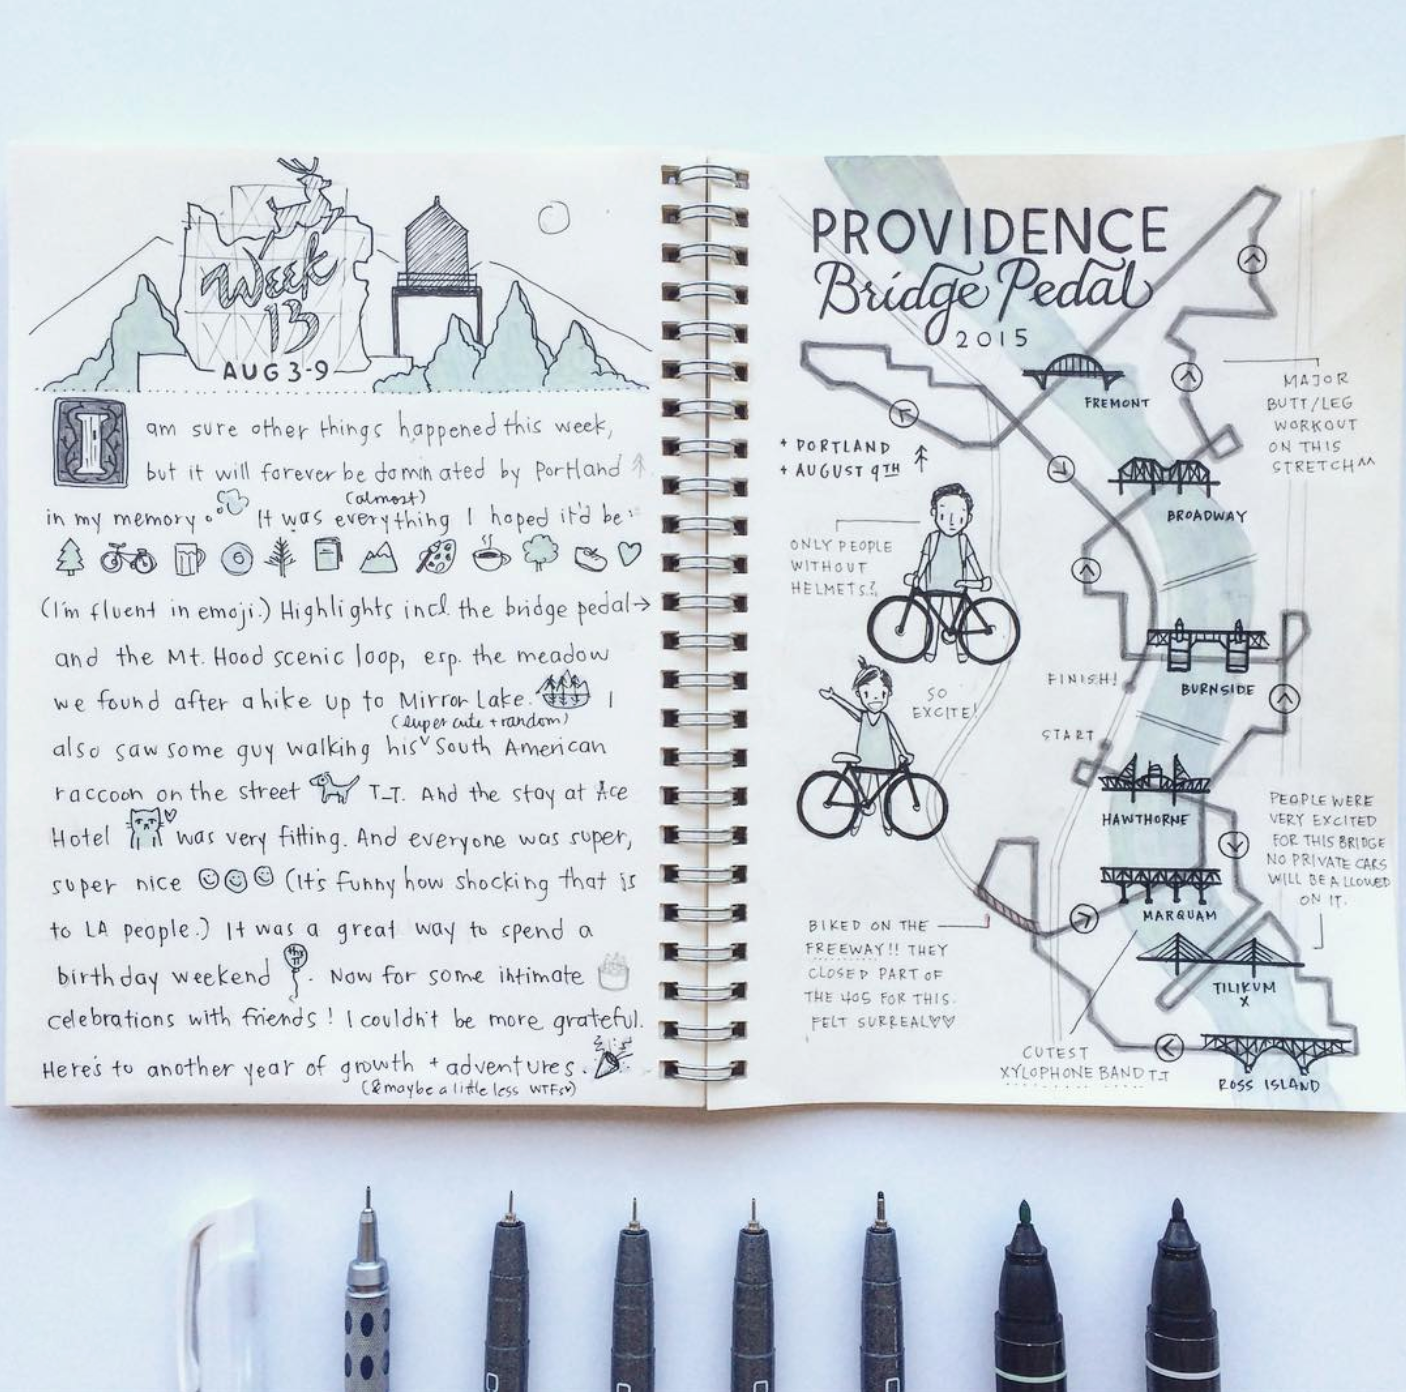 Week
13
AUG 3-9
I am sure other things happened this week,
but it will forever be dominated by Portland
in my memory. It was (almost) everything I hoped it'd be:
(I'm fluent in emoji.) Highlights incl. the bridge pedal→
and the Mt. Hood scenic loop, esp. the meadow
we found after a hike up to Mirror Lake. I
also saw some guy walking his (super cute + random) South American
raccoon on the street T_T. And the stay at Ace
Hotel was very fitting. And everyone was super,
super nice (It's funny how shocking that is
to LA people.) It was a great way to spend a
birthday weekend. Now for some intimate
celebrations with friends! I couldn't be more grateful.
Here's to another year of growth + adventures.
(& maybe a little less WTFs)
PROVIDENCE
Bridge Pedal
2015
+ PORTLAND
+ AUGUST 9TH
ONLY PEOPLE
WITHOUT
HELMETS?
SO
EXCITE!
BIKED ON THE
FREEWAY!! THEY
CLOSED PART OF
THE 405 FOR THIS.
FELT SURREAL♡♡
FREMONT
MAJOR
BUTT/LEG
WORKOUT
ON THIS
STRETCH^^
BROADWAY
BURNSIDE
FINISH!
START
HAWTHORNE
PEOPLE WERE
VERY EXCITED
FOR THIS BRIDGE
NO PRIVATE CARS
WILL BE ALLOWED
ON IT.
MARQUAM
TILIKUM
X
CUTEST
XYLOPHONE BAND T_T
ROSS ISLAND